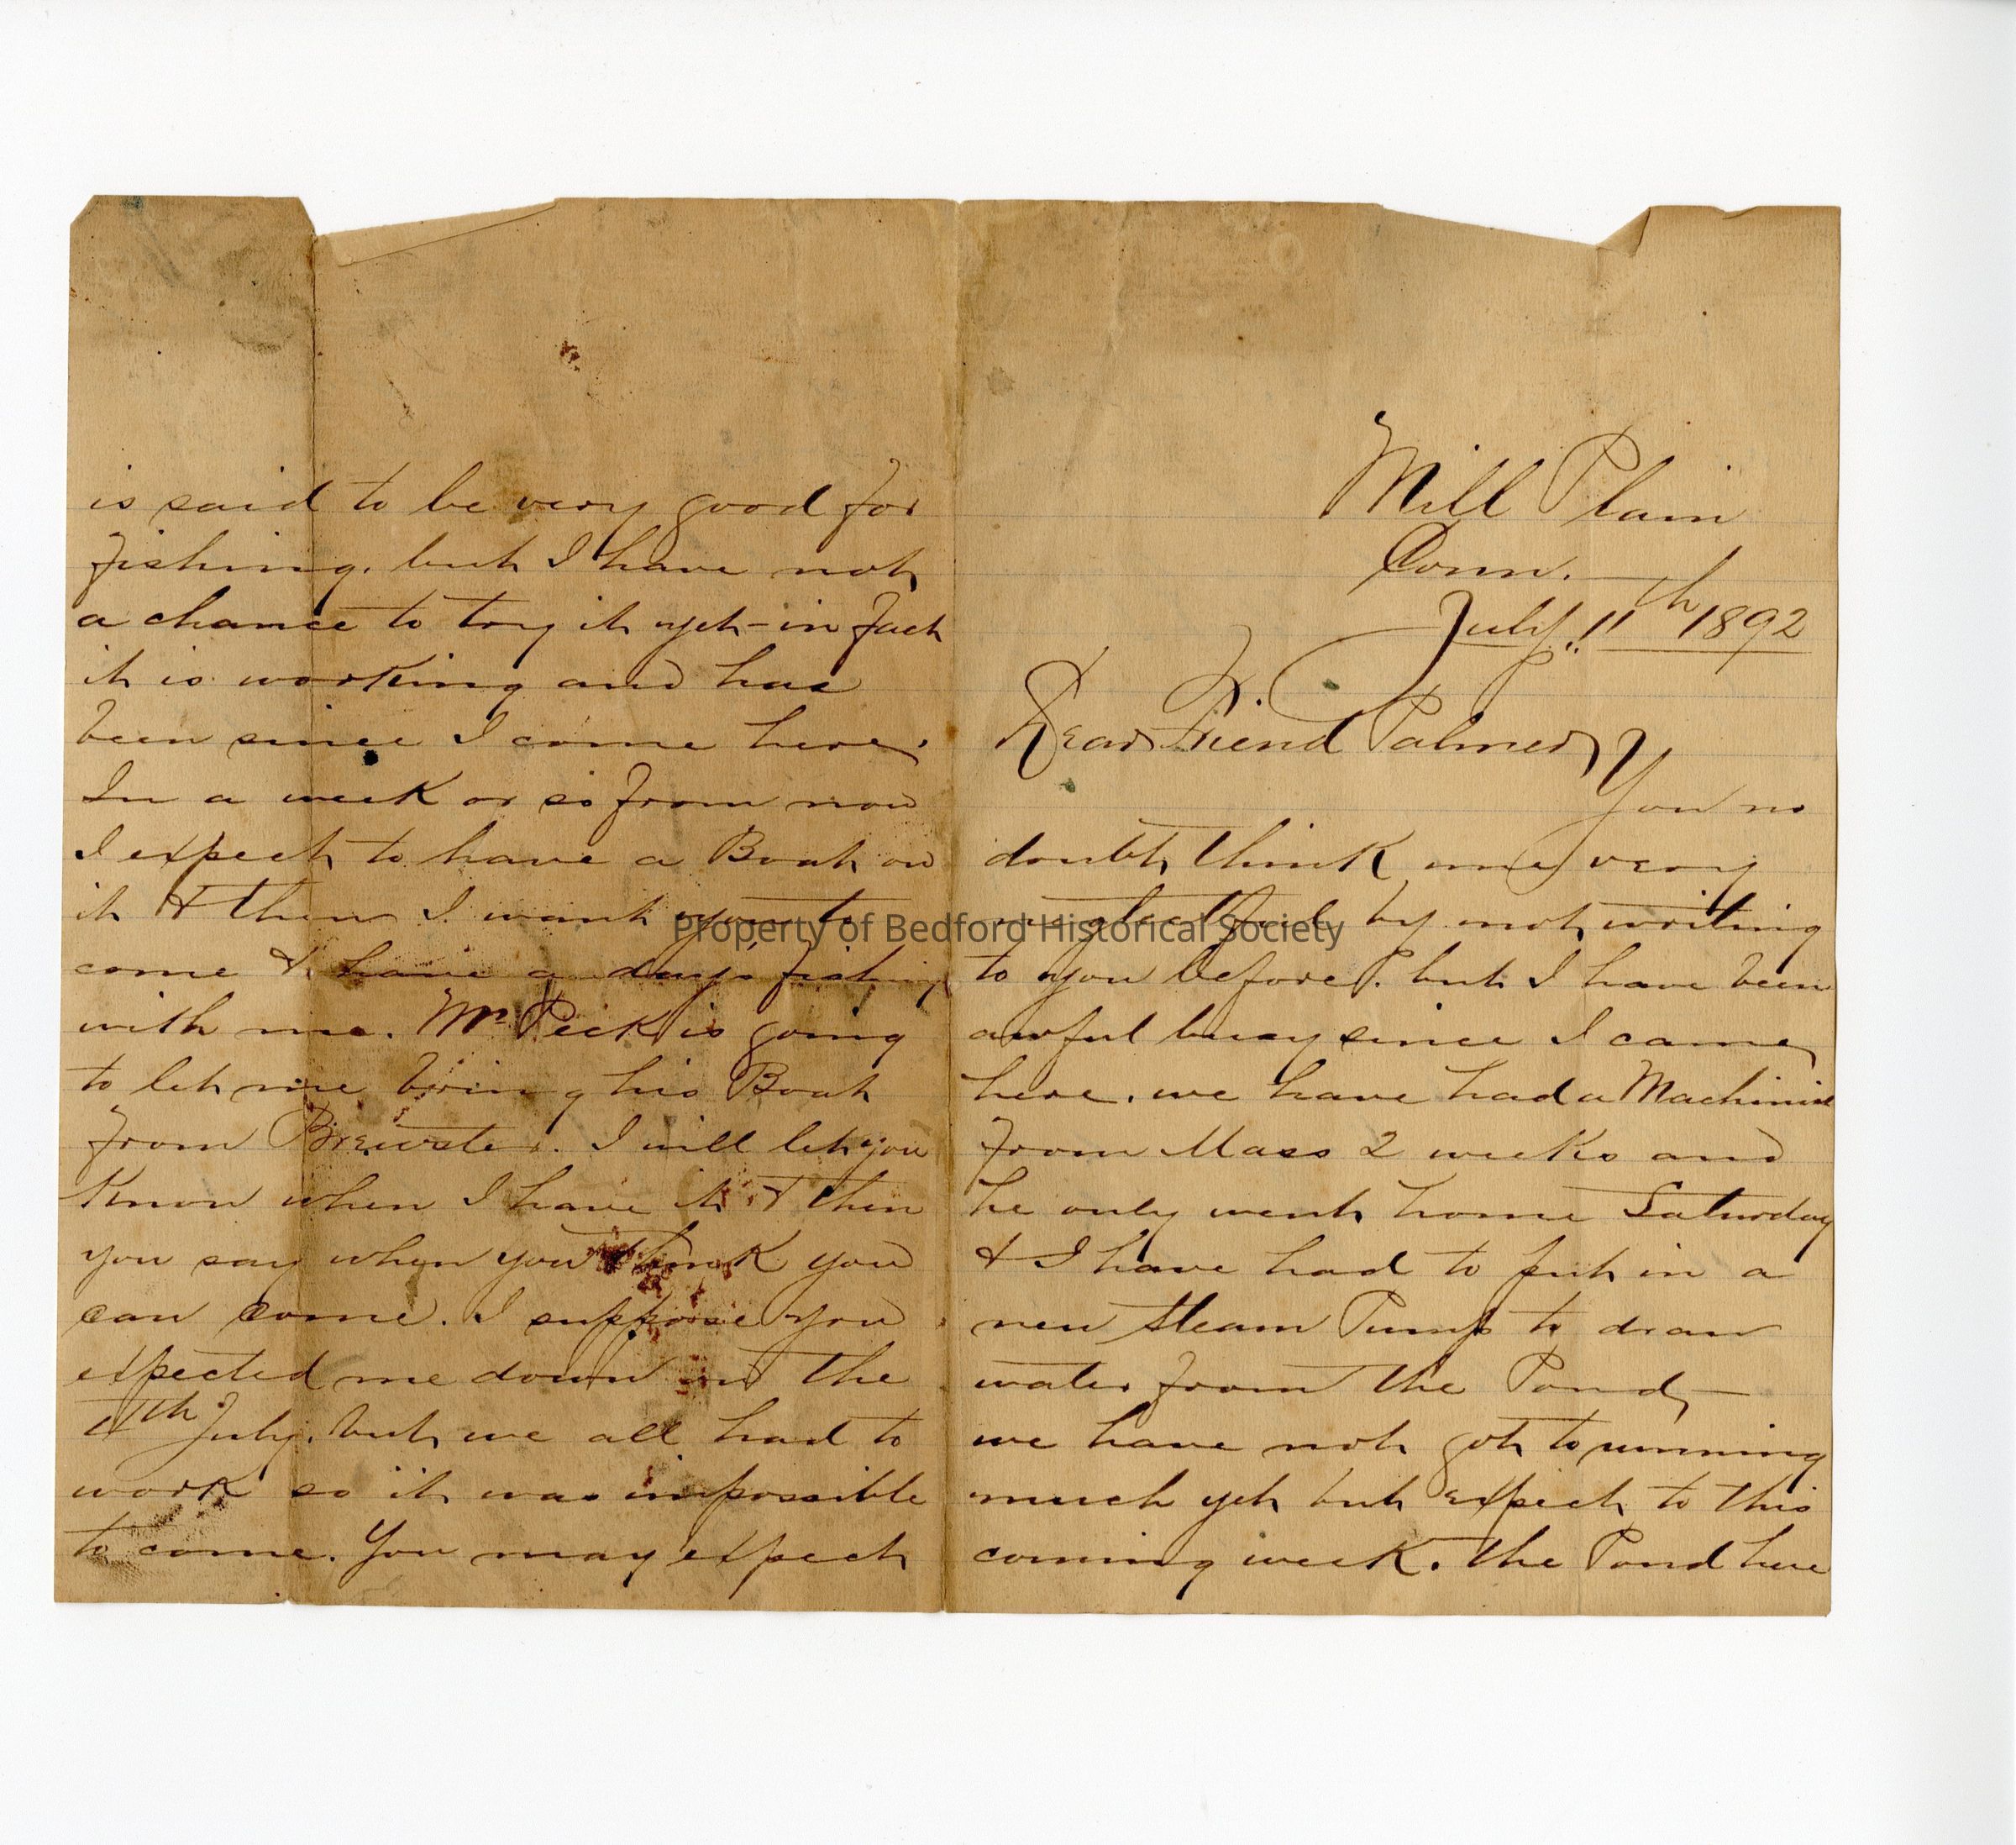 Mill Plain
Conn.
July 11th 1892
Dear Friend Palmer
You no
doubt think me very
neglectful by not writing
to you before. but I have been
awful busy since I came
here. we have had a Machinist
from Mass 2 weeks and
he only went home Saturday
& I have had to put in a
new Steam Pump to draw
water from the Pond —
we have not got to running
much yet but expect to this
coming week. the Pond here
is said to be very good for
fishing. but I have not
a chance to try it yet - in fact
it is working and has
been since I come here.
In a week or so from now
I expect to have a Boat on
it & then I want you to
come & have a day's fishing
with me. Mr Peck is going
to let me bring his Boat
from Brewster. I will let you
Know when I have it & then
you say when you think you
can come. I suppose you
expected me down on the
4th July. but we all had to
work so it was impossible
to come. You may expect
Property of Bedford Historical Society